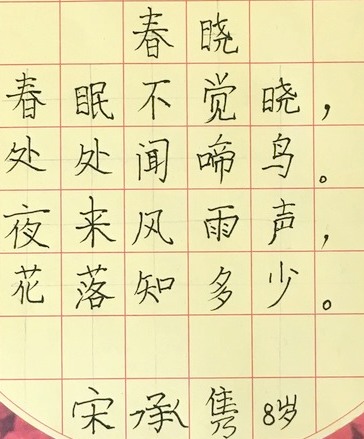 春晓
春眠不觉晓，
处处闻啼鸟。
夜来风雨声，
花落知多少。
宋承隽 8岁